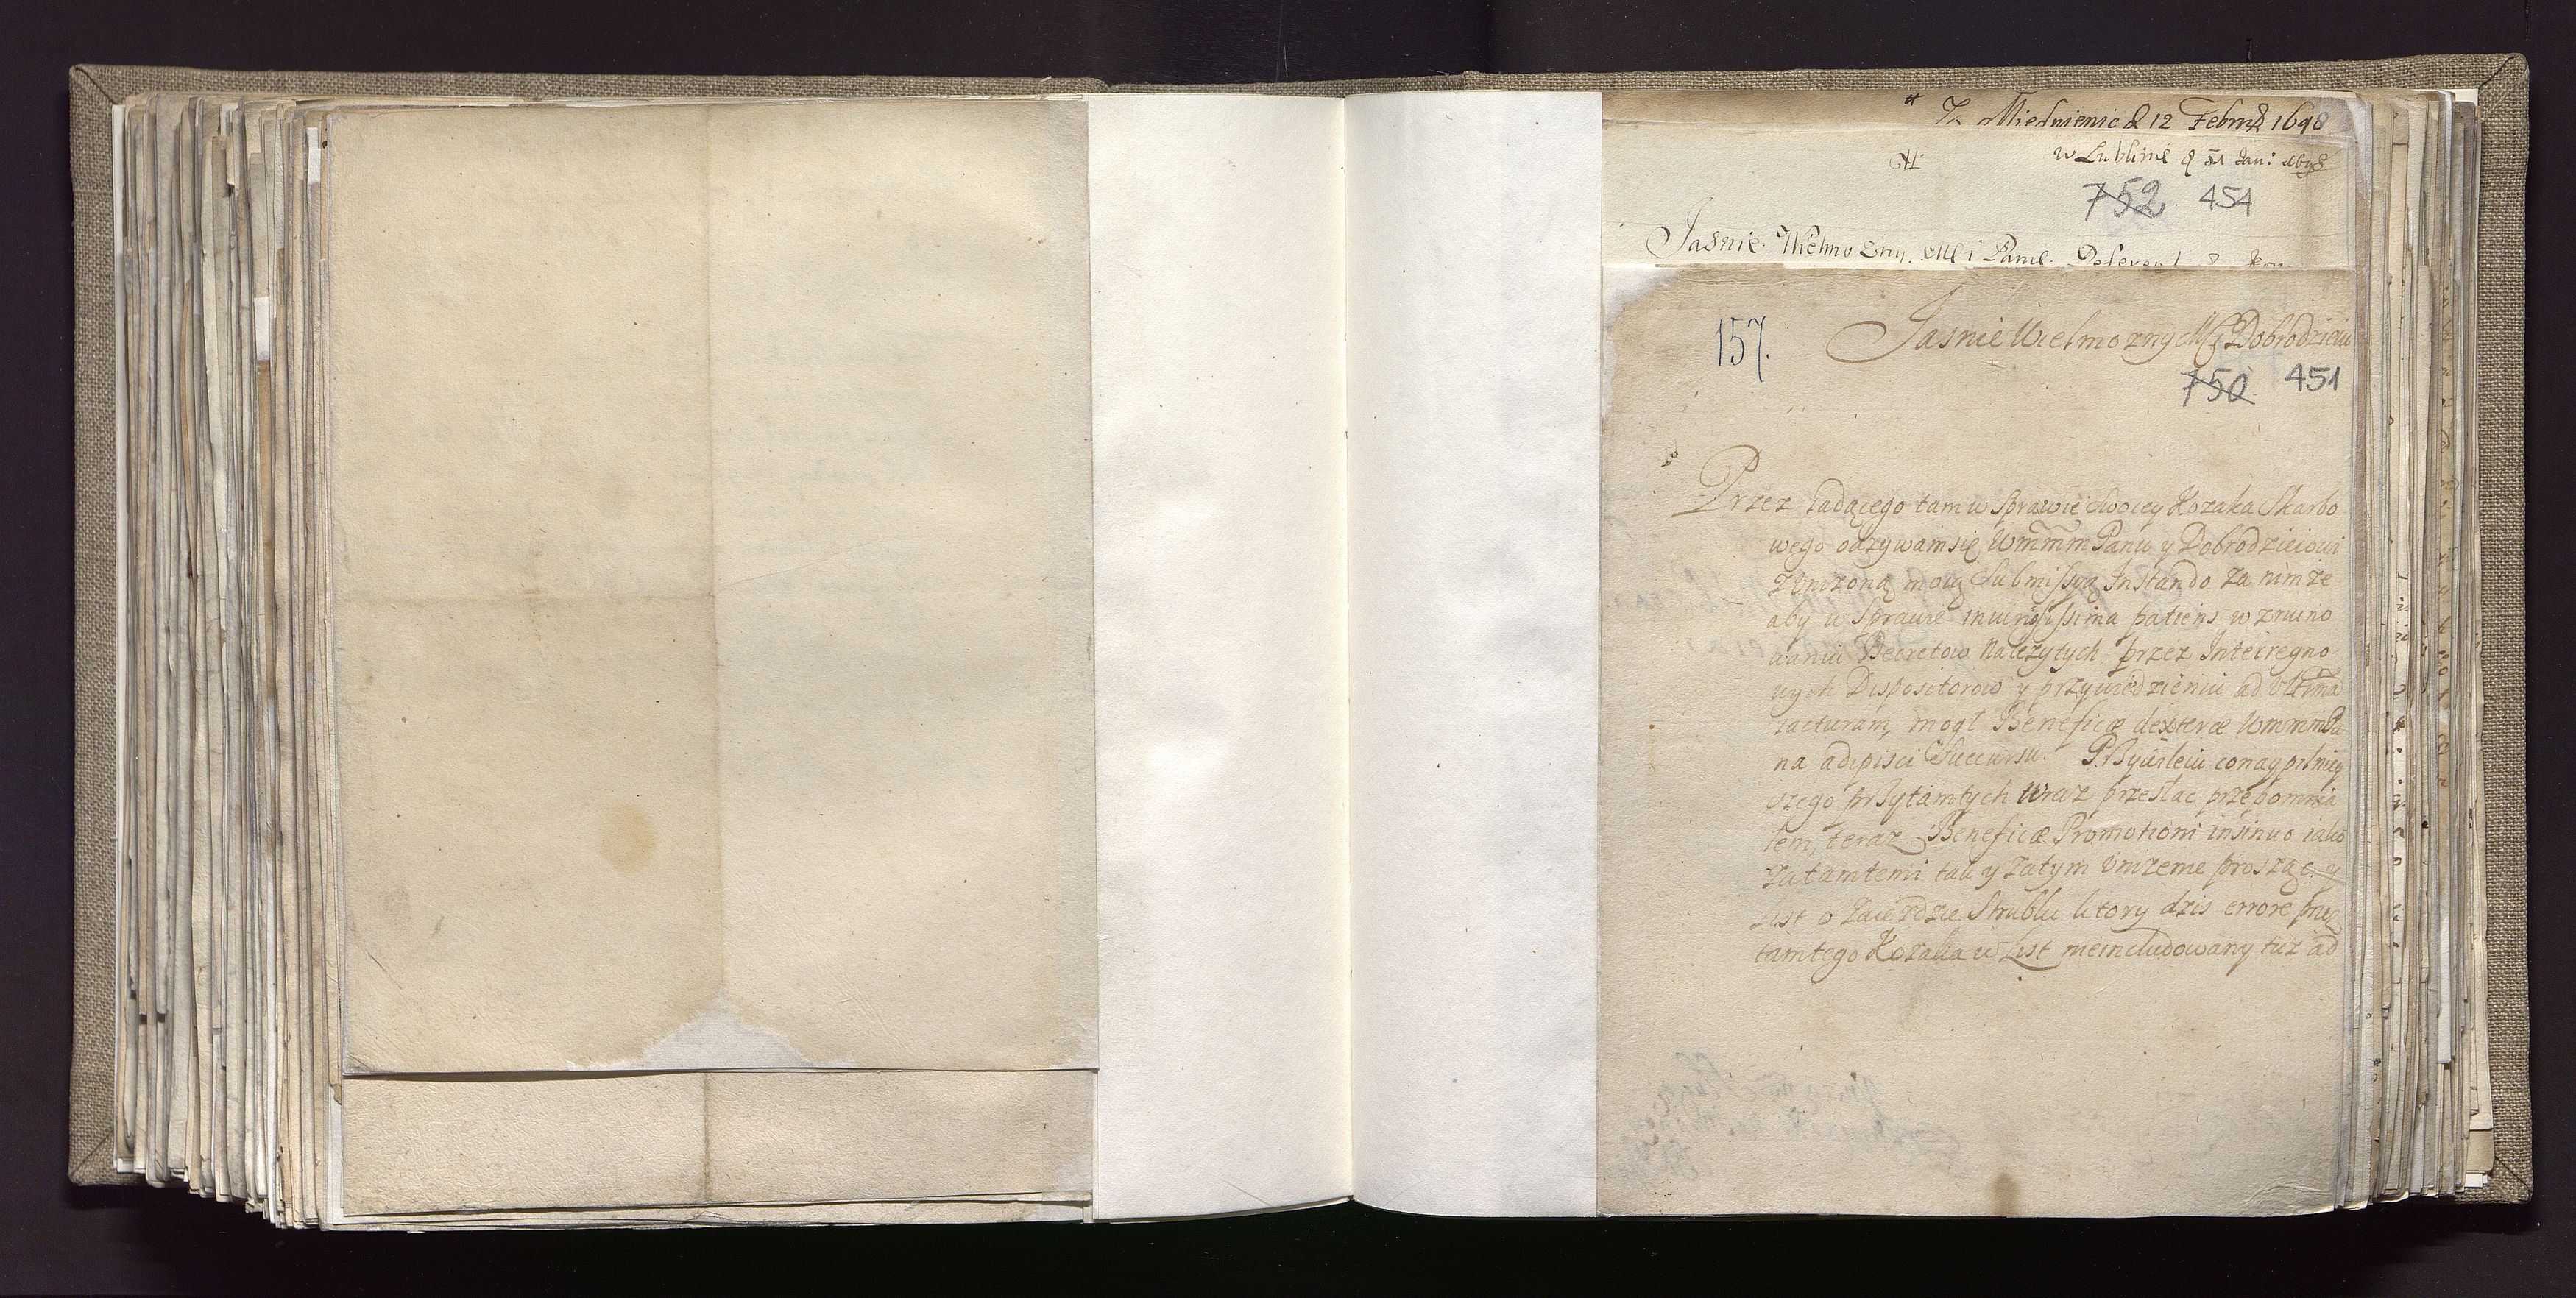 Z Miednienic d 12 Febru 1698
w Lublinie d 31 Jani
752 454
Jasnie Wielmozny Mci Panie
157. Jasnie Wielmozny Mci Dobrodzieiu
750 451
Przez Iadącego tam w sprawie swoiey Kozaka Skarbo
wego odzywam się Wmmm Panu y Dobrodzieiowi
z vnizoną moią Submissyą Instando za nim ze
aby w Sprawie patiens w zruino
waniu Decretow Nalezytych przez Interregno
wych Dispositorow y przywiedzieniu ad Vltima
iacturam, mogł Beneficæ dexteræ WmmmPa
na adipisci Succursu. Przywileiu conaypilniey
szego przytamtych wraz przesłac przepomnia
łem, teraz Beneficæ Promotioni insinuo iako
zatamtemi tak y zatym vnizenie prosząc. y
List o Strublu ktory dzis errore przez
tamtego Kozaka w List nieincludowany tuz ad